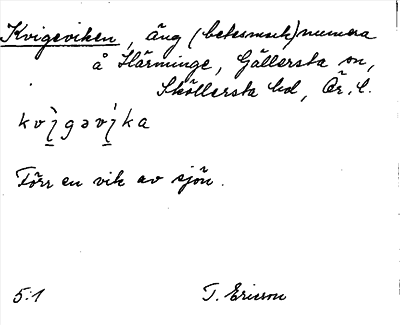 Kvigeviken, äng (betesmark) numera
å Härminge, Gällersta sn,
Sköllersta hd, Ör. l.
kvı̀gəvı̀ka
Förr en vik av sjön.
5:1 T. Ericson